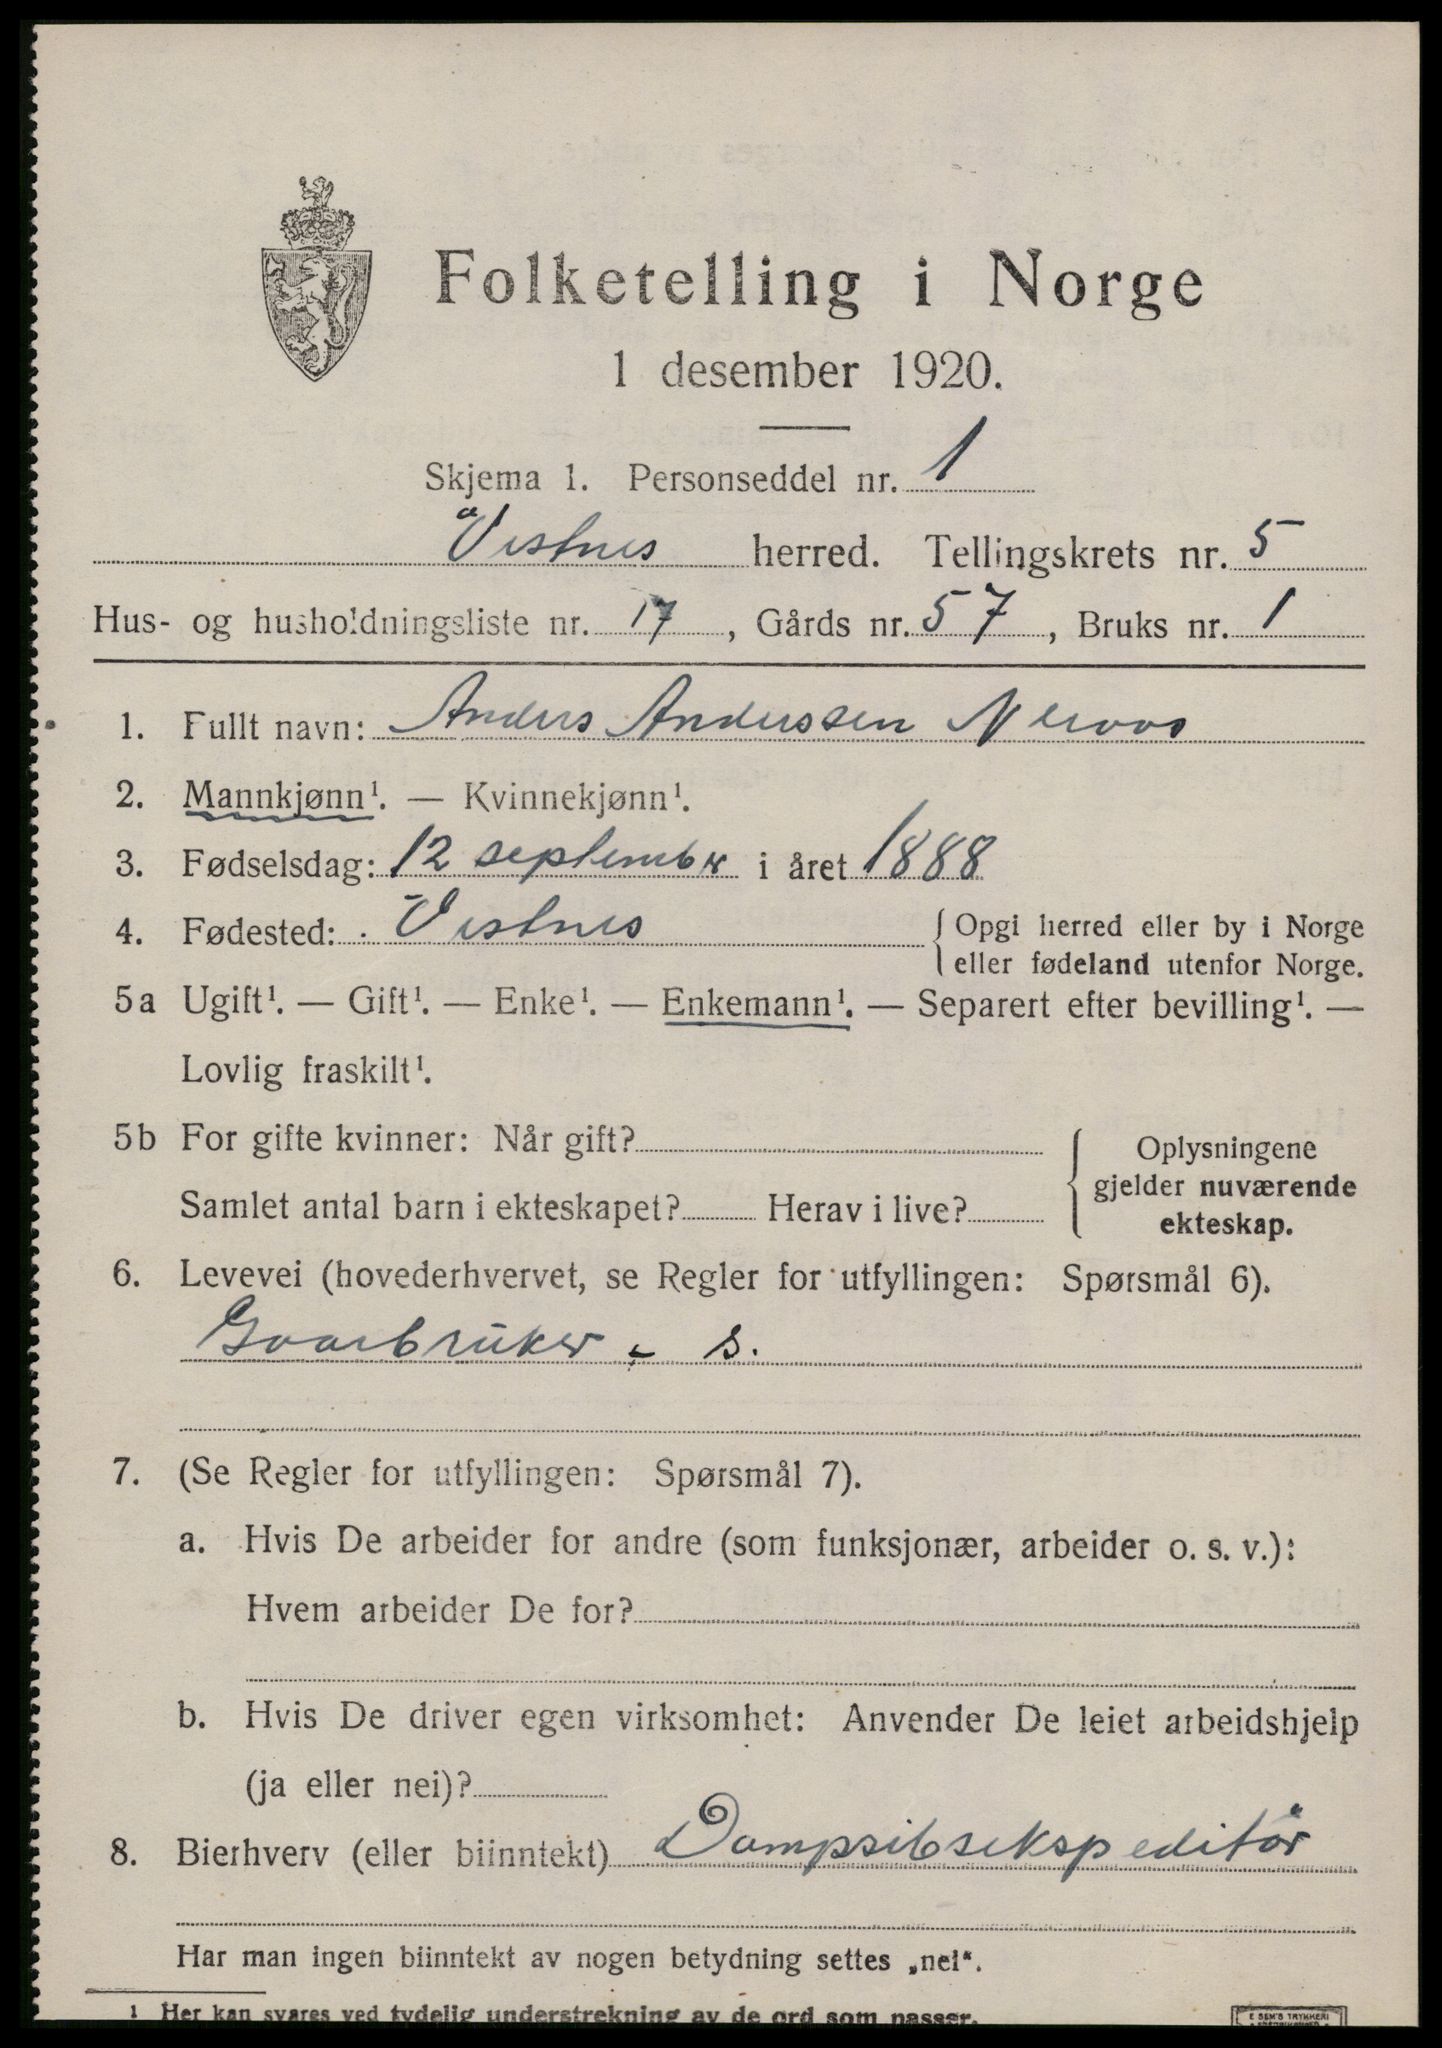 Folketelling i Norge
1 desember 1920.
Skjema 1. Personseddel nr. 1
Vestnes herred. Tellingskrets nr. 5
Hus- og husholdningsliste nr. 17, Gårds nr. 57, Bruks nr. 1
1. Fullt navn: Anders Anderssen Neraas
2. Mannkjønn¹. — Kvinnekjønn¹.
3. Fødselsdag: 12 september i året 1888
4. Fødested: Vestnes { Opgi herred eller by i Norge
eller fødeland utenfor Norge.
5a Ugift¹. — Gift¹. — Enke¹. — Enkemann¹. — Separert efter bevilling¹. —
Lovlig fraskilt¹.
5b For gifte kvinner: Når gift? { Oplysningene
gjelder nuværende
Samlet antal barn i ekteskapet? Herav i live? ekteskap.
6. Levevei (hovederhvervet, se Regler for utfyllingen: Spørsmål 6).
Gaarbruker - s.
7. (Se Regler for utfyllingen: Spørsmål 7).
a. Hvis De arbeider for andre (som funksjonær, arbeider o. s. v.):
Hvem arbeider De for?
b. Hvis De driver egen virksomhet: Anvender De leiet arbeidshjelp
(ja eller nei)?
8. Bierhverv (eller biinntekt) Dampsibsekspeditør
Har man ingen biinntekt av nogen betydning settes „nei“.
1 Her kan svares ved tydelig understrekning av de ord som passer.